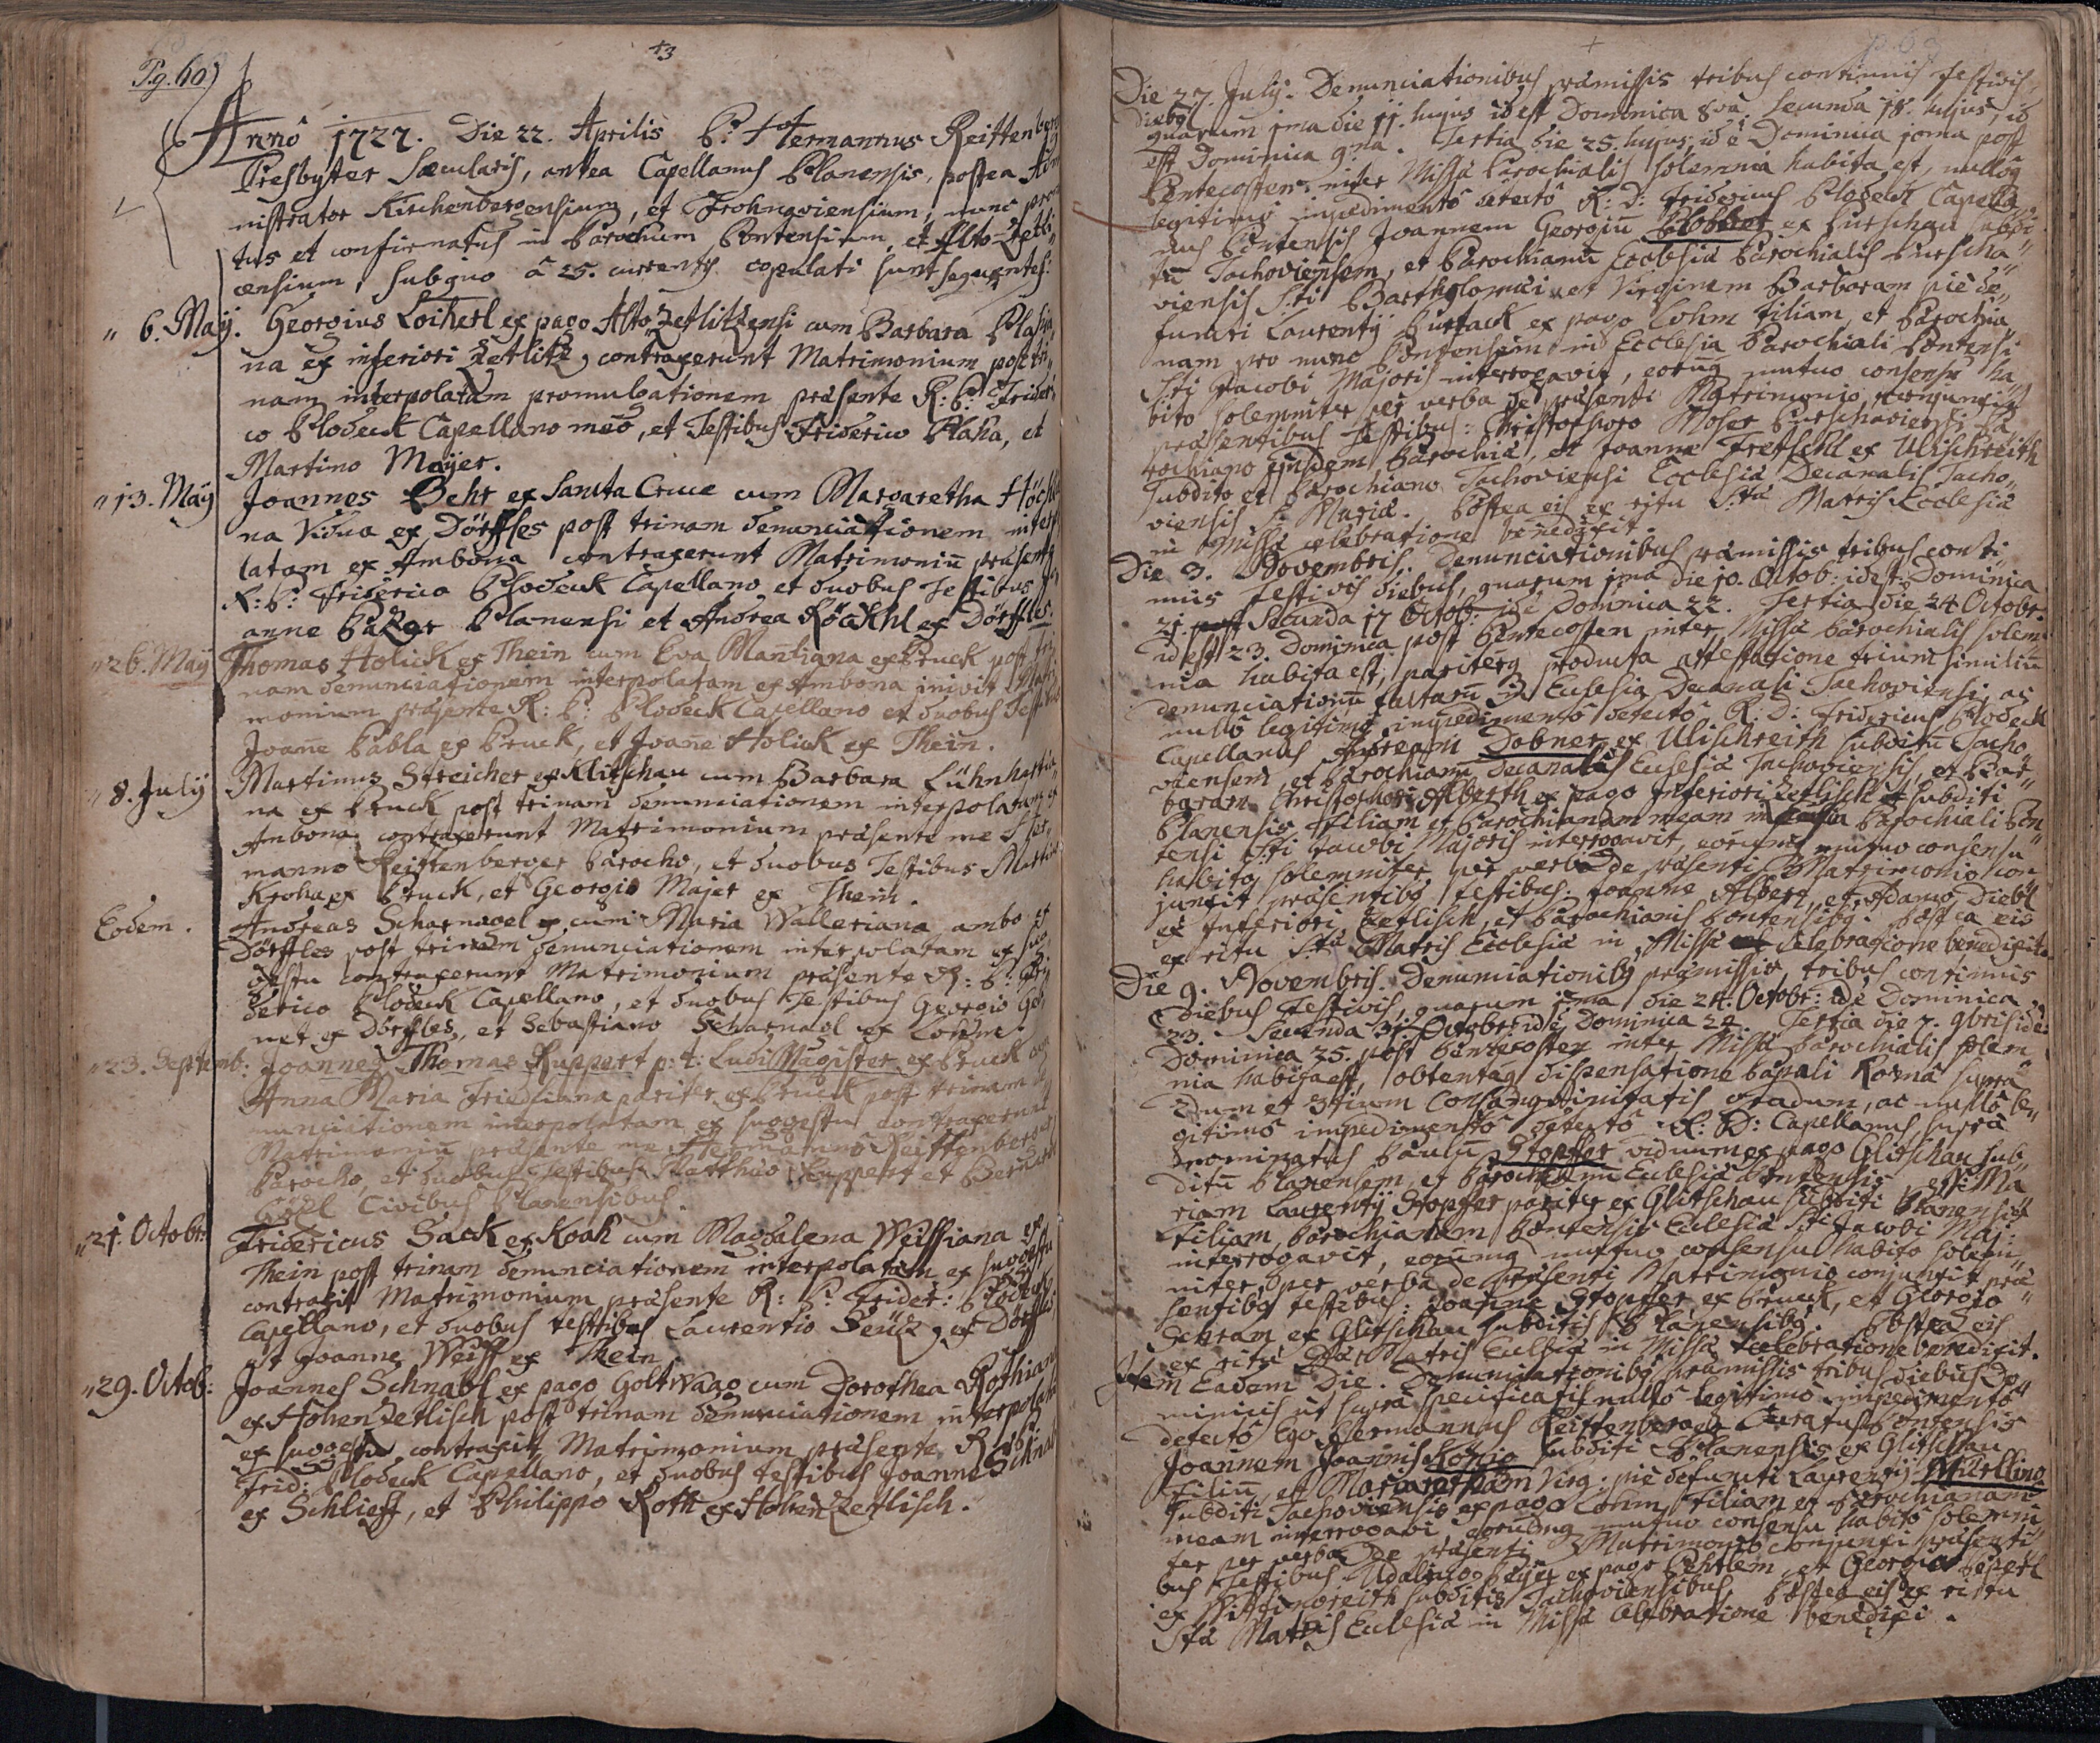 Pg. 60)
43
Anno 1727. Die 22. Aprilis P. Hermannus Reittenberg
Presbyter Sæcularis, antea Capellanus Planensis, postea Adm
nistrator Kirchenbergensium, et Frohnaviensium, nunc
tus et confirmatus in Parochum Pontensium, et Alto-Zetli
censium, sub quo â 25. currentis copulati sunt sequentes:
" 6. Maij. Georgius Loiherl ex pago Alto Zetlitzensi cum Barbara
na ex inferiori Zetlitz, contraxerunt Matrimonium post tri
nam interpolatam promulgationem præsente R: P: Frideri
co Plodeck Capellano meo, et Testibus Friderico Plaha, et
Martino Mayer.
" 13. Maij Joannes Behr ex Sancta Cruce cum Margaretha
na Vidua ex Dörffles post trinam denunciationem interpo
latam ex Ambona contraxerunt Matrimoniũ præsente
R: P: Friderico Plodeck Capellano et duobus Testibus
anne Balzer Planensi et Andrea Röckhl ex Dörffles.
" 26. Maij Thomas Holick ex Thein cum Eva Mantiana ex Pruck post tri
nam denunciationem interpolatam ex Ambona inivit Matri
monium præsente R: P: Plodeck Capellano et duobus
Joañe Babla ex Pruck, et Joañe Holick ex Thein.
" 8. Julij Martinus Streicher ex Klitschau cum Barbara
na ex Pruck post trinam denunciationem interpolatam ex
Ambona contraxerunt Matrimonium præsente me Her
manno Reittenberger Parocho, et duobus Testibus Martino
Kroha ex Pruck, et Georgio Majer ex Thein.
Eodem. Andreas Scharnagel cum Maria Walleriana ambo ex
Dörffles post trinam denunciationem interpolatam ex sug
gestu contraxerunt Matrimonium præsente R: P: Fri
derico Plodeck Capellano, et duobus Testibus Georgio
ex Dörffles, et Sebastiano Scharnagl ex
" 23. Septemb: Joannes Thomas Ruppert p: t: LudiMagister ex Pruck cum
Anna Maria Fridliana pariter ex Pruck post trinam de
nunciationem interpolatam ex suggestu contraxerunt
Matrimoniũ præsente me Hermanno Reittenberger
Parocho, et duobus Testibus Matthæo Ruppert et
Civibus Planensibus.
" 21. Octobr: Fridericus Sack ex Koah cum Magdalena Weissiana ex
Thein post trinam denunciationem interpolatam ex suggestu
contraxit Matrimonium præsente R: P: Frider: Plodeck
Capellano, et duobus testibus Laurentio ex Dörffles,
et Joanne Weiss ex Thein.
" 29. Octob: Joannes Schnabl ex pago Goltwaag cum Dorothea Rothiana
ex Hohen Zetlisch post trinam denunciationem interpolatam
ex suggestu contraxit Matrimonium præsente R: P:
Frid: Plodeck Capellano, et duobus testibus Joanne Schnabl
ex Schlieff, et Philippo Roth ex Hohen Zetlisch.
Die 27. Julij. Denunciationibus præmissis tribus continuis festivis
diebus quarum 1ma die 11. hujus id est Dominica 8va. Secunda 18. hujus, id
est Dominica 9na. Tertia die 25. hujus, id ẽ Dominica 10ma post
Pentecosten inter Missæ Parochialis solemnia habita est, nullôq
legitimô impedimentô detectô R: D: Fridericus Plodeck Capella
nus Pontensis Joannem Georgiũ ex Purschau subdi
tũ Tachoviensem, et Parochianũ Ecclesiæ Parochialis Purscha
viensis S:ti Bartholomæi et Virginem Barbaram pie de
functi Laurentij ex pago Lohm filiam, et Parochia
nam pro nunc Pontensem in Ecclesia Parochiali Pontensi
S:ti Jacobi Majoris interrogavit, eorũq mutuo consensu ha
bito solemniter per verba de præsenti Matrimonio conjunxit
præsentibus testibus: Christophoro Moser Purschaviensi Pa
rochiano ejusdem Parochiæ, et Joanne ex Ulischreith
Subdito et Parochiano Tachoviensi Ecclesiæ Decanalis Tacho
viensis S: Mariæ. Postea eis ex ritu S:tæ Matris Ecclesiæ
in Missæ celebratione benedixit.
Die 3. Novembris. Denunciationibus præmissis tribus conti
nuis festivis diebus, quarum 1ma die 10. Octob: id est Dominica
21. Secunda 17 Octob: id ẽ Dominica 22. Tertia die 24 Octobr:
id est 23. Dominica post Pentecosten inter Missæ Parochialis solem
nia habita est; pariterq producta attestatione trium similiũ
denunciationũ factarũ in Ecclesia Decanali Tachoviensi, ac
nullô legitimô impedimentô detectô R: D: Fridericus Plodeck
Capellanus Andream Dobner ex Ulischreith subditũ Tacho
viensem, et Parochianũ Decanalis Ecclesiæ Tachoviensis, et Bar
baram Christophori Alberth ex pago Inferiori Zetlisch subditi
Planensis filiam et Parochianam meam in Parochiali Pon
tensi S:ti Jacobi Majoris interrogavit, eorumq mutuo consensu
habito solemniter per verba de præsenti Matrimonio con
junxit præsentibus testibus: Joanne Albert, et Adamo Diebl
ex Inferiori Zetlisch, et Parochianis Pontensibus: Postea eis
ex ritu S:tæ Matris Ecclesiæ in Missæ celebratione benedixit.
Die 9. Novembris. Denunciationibus præmissis, tribus continuis
Diebus Festivis, quarum 1ma die 24. Octobr: id ẽ Dominica
23. Secunda 31. Octobr: id ẽ Dominica 24. Tertia die 7. 9bris id ẽ
Dominica 25. post Pentecosten inter Missæ Parochialis solem
nia habita est, obtentaq dispensatione Papali Romæ supra
2dum et 3tium Consanguinitatis gradum, ac nullô le
gitimô impedimentô detectô R: D: Capellanus supra
nominatus Paulũ Stopffer viduum ex pago Glitschau sub
ditũ Planensem, et Parochianum Ecclesiæ Pontensis, et Ma
riam Laurentij Stopffer pariter ex Glitschau subditi Planensis
Filiam, Parochianam Pontensis Ecclesiæ S:ti Jacobi Maj:
interrogavit, eorumq mutuo consensu habito solem
niter per verba de præsenti Matrimonio conjunxit præ
sentibus testibus: Joanne Stopffer ex Pruck, et Georgio
Schram ex Glitschau subditis Planensibus. Postea eis
ex ritu S:tæ Matris Ecclesiæ in Missæ celebratione benedixit.
Item Eadem Die. Denunciationibus præmissis tribus diebus Do
minicis ut supra specificatis nullô legitimo impedimentô
detectô Ego Hermannus Reittenberger Curatus Pontensis
Joannem Joannis König subditi Planensis ex Glitschau
Filiũ, et Margaretham Virg: pie defuncti Laurentij Müllling
subditi Tachoviensis ex pago Lohm Filiam et Parochianam
meam interrogavi, eorumq mutuo consensu habito solemni
ter per verba de præsenti Matrimonio conjunxi præsenti
bus testibus Udalrico Beyer ex pago et Georgio
ex subditis Tachoviensibus. Postea eis ex ritu
S:tæ Matris Ecclesiæ in Missæ celebratione benedixi.